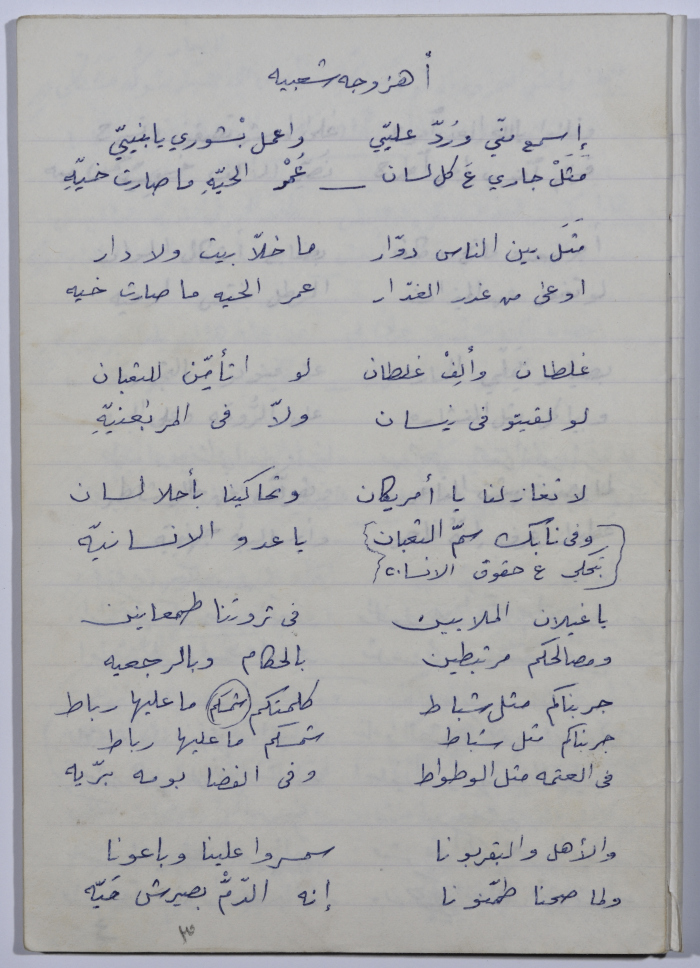 أهزوجه شعبيه
إسمع منّي ورُدّ عليّي واعمل بْشوري يا بنييّ
مَثَلْ جاري عَ كل لسان ــ عُمْر الحيّهِ ما صارت خيّهِ
مَثَلَ بين الناس دوّار ما خلاّ بيت ولا دار
اوعى من غدر الغدّار عمر الحيّه ما صارت خيه
غلطان وألِفْ غلطان لو اتأمّن للثعبان
لو لقيتو في نيسان ولاّ في المربْعنيّهِ
لا تغازلنا يا أمريكان وتحاكينا بأحلا لسان
{وفي نابك سمّ الثعبان} يا عدو الانسانيّه
{بتحكي ع حقوق الانسان}
يا غيلان الملايين في ثروتنا طمعانين
ومصالحكم مرتبطين بالحكام وبالرجعيه
جربناكم مثل شباط كلمتكم شمسكم ما عليها رباط
جربناكم مثل شباط شمسكم ما عليها رباط
في العتمه مثل الوطواط وفي الفضا بومه برّيه
والأهل والبقربونا سمسروا علينا وباعونا
ولما صحنا طمّنونا إنه الدّمّ بصيرش مَيّه
٣